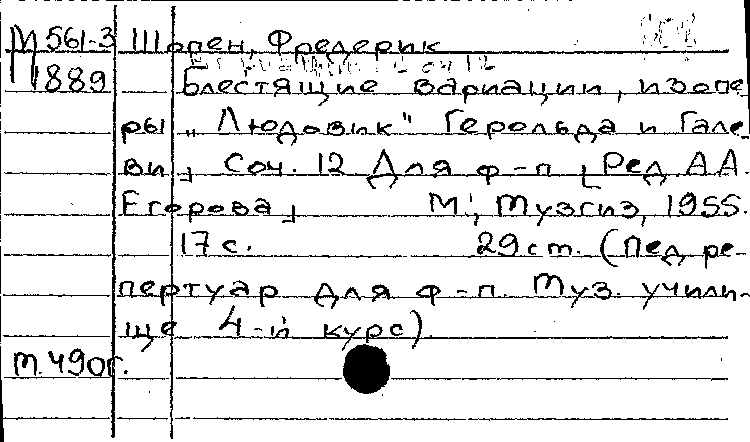 М 561-3 Шопен, Фредерик
1889 Блестящие вариации, изопе
ры „Людовик" Герольда и Гале-
ви」 Соч. 12 Для ф-п [Ред. А.А.
Егорова」 М., Музгиз, 1955.
17 с. 29 ст. (Пед ре-
пертуар для ф-п. Муз. учили-
ще 4-й курс).
т. 490г.